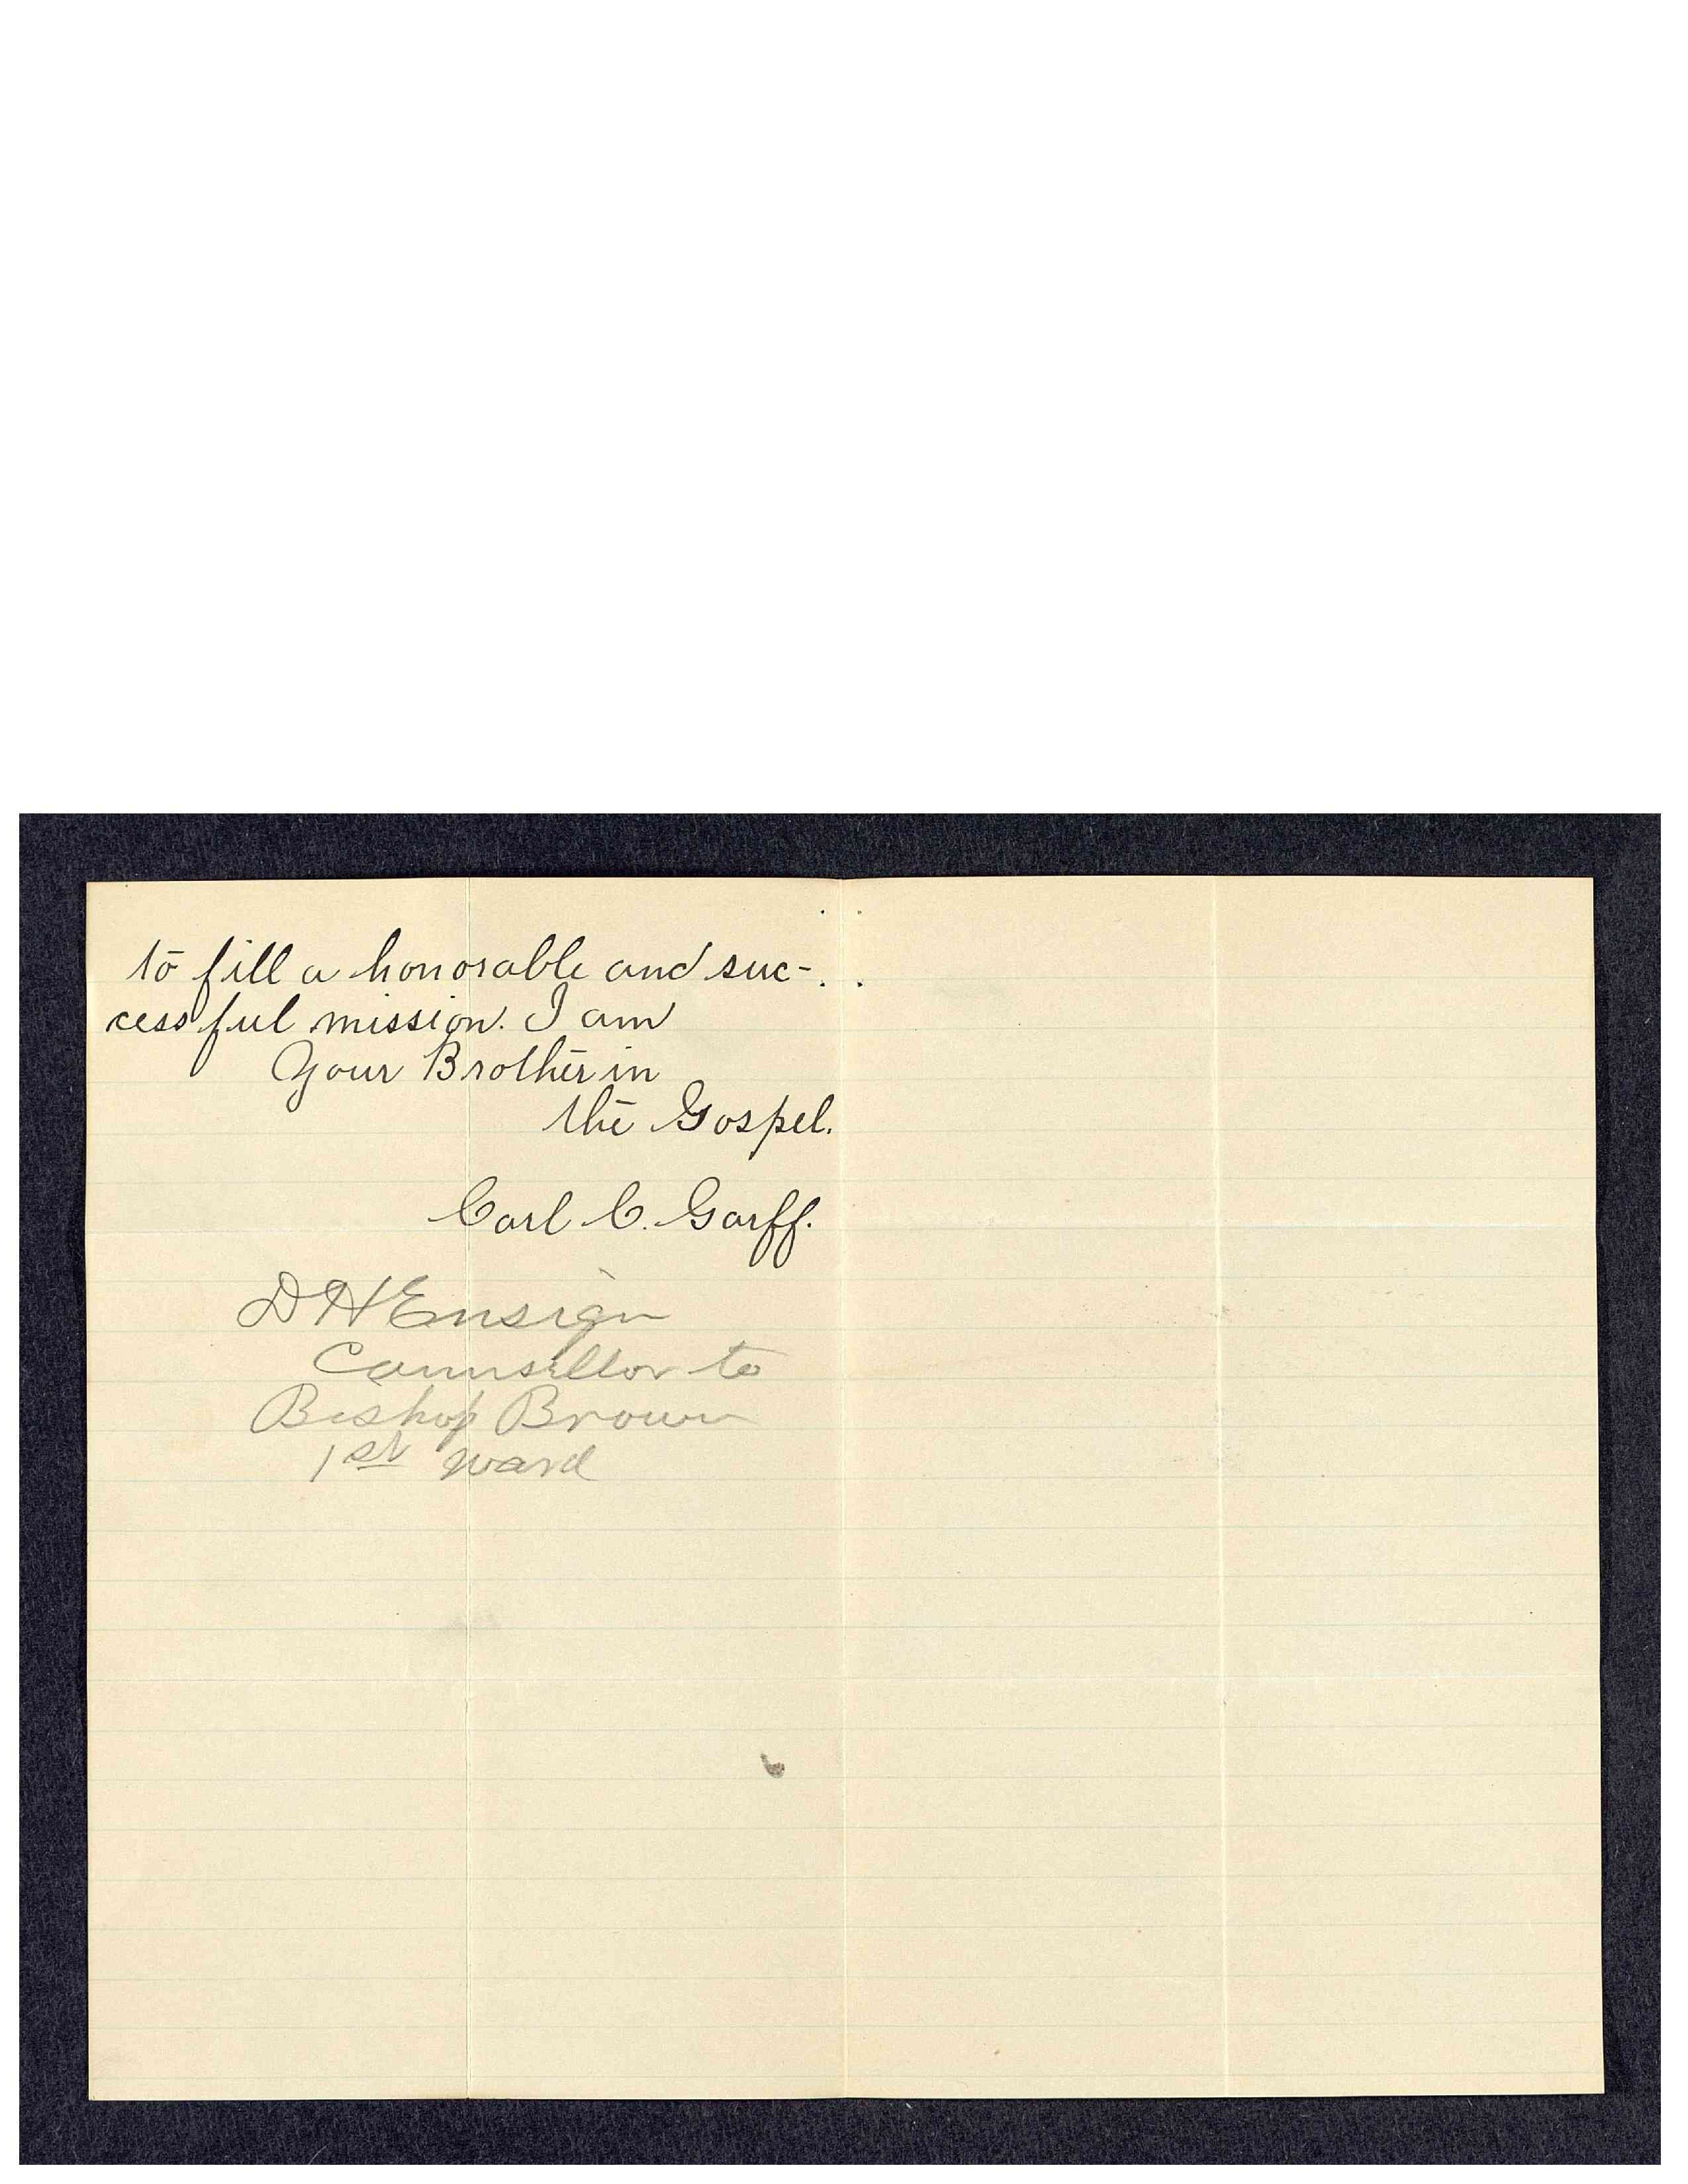 to fill a honorable and suc-
cessful mission. I am
Your Brother in
the Gospel.
Carl C. Garff.
D H Ensign
Counsellor to
Bishop Brown
1st ward